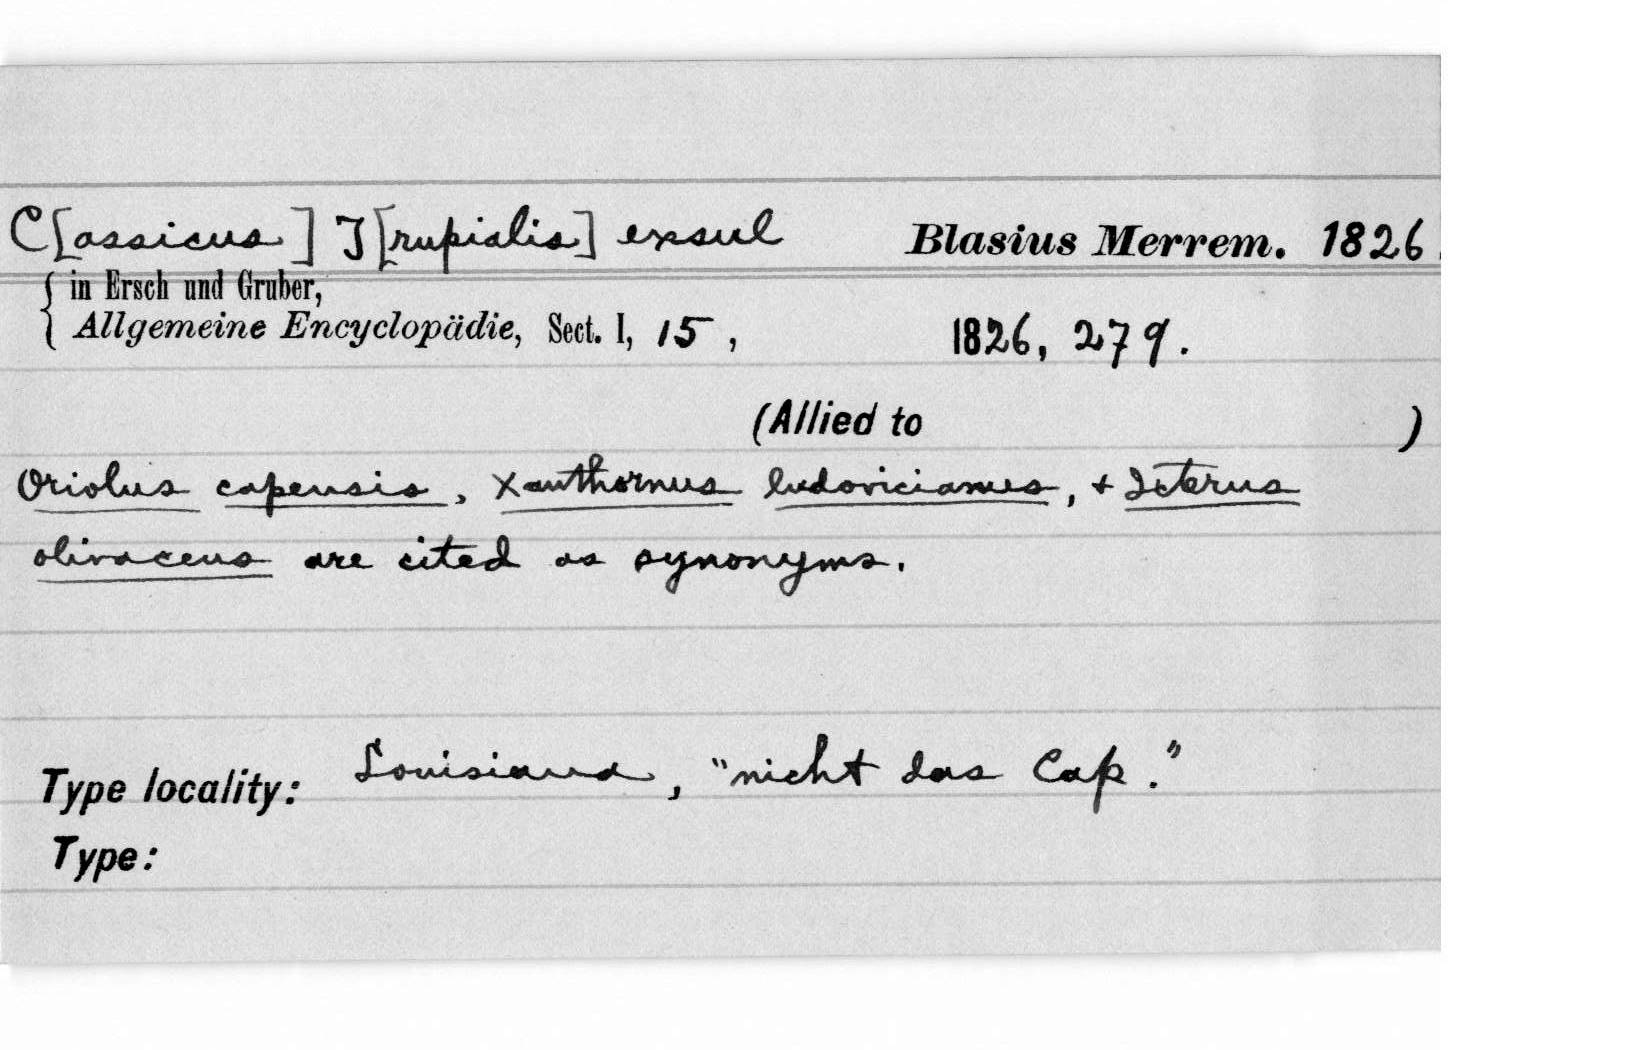 C[assicus] T[rupialis] exsul Blasius Merrem. 1826.
{ in Ersch und Gruber,
Allgemeine Encyclopädie, Sect. I, 15, 1826, 279.
(Allied to )
Oriolus capensis, Xanthornus ludovicianus, + Icterus
olivaceus are cited as synonyms.
Type locality: Louisiana, "nicht das Cap."
Type: